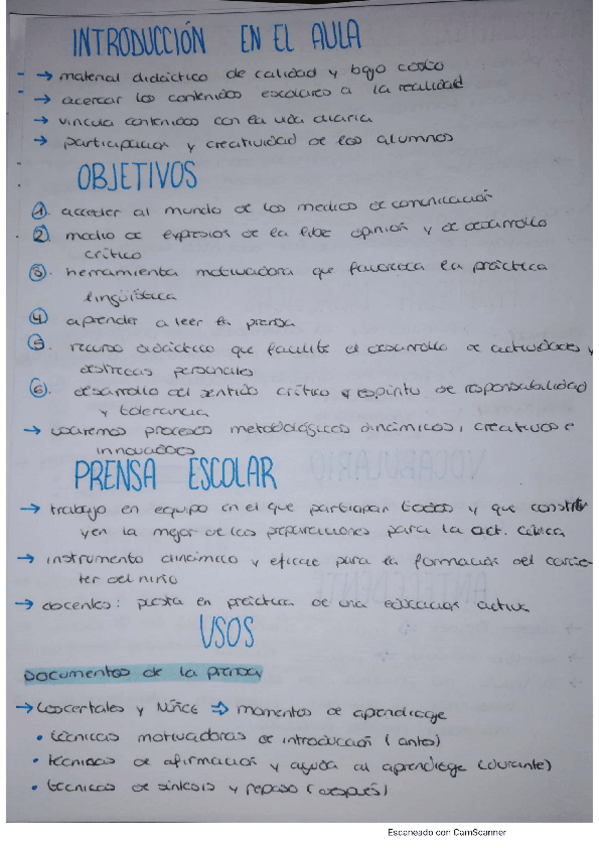 INTRODUCCIÓN EN EL AULA
- → material didáctico de calidad y bajo costo
- → acercar los contenidos escolares a la realidad
→ vincula contenidos con la vida diaria
→ participación y creatividad de los alumnos
OBJETIVOS
1. acceder al mundo de los medios de comunicación
2. medio de expresión de la libre opinión y de desarrollo
crítico
3. herramienta motivadora que favorezca la práctica
lingüística
4. aprender a leer la prensa
5. recurso didáctico que facilite el desarrollo de actividades y
destrezas personales
6. desarrollo del sentido crítico y espíritu de responsabilidad
y tolerancia
→ usaremos procesos metodológicos dinámicos, creativos e
innovadores
PRENSA ESCOLAR
→ trabajo en equipo en el que participan todos y que constitu
yen la mejor de las preparaciones para la act. cívica
→ instrumento dinámico y eficaz para la formación del carác-
ter del niño
→ docentes: puesta en práctica de una educación activa
USOS
Documentos de la prensa
→ Loscertales y Núñez ⇒ momentos de aprendizaje
• técnicas motivadoras de introducción (antes)
• técnicas de afirmación y ayuda al aprendizaje (durante)
• técnicas de síntesis y repaso (después)
Escaneado con CamScanner